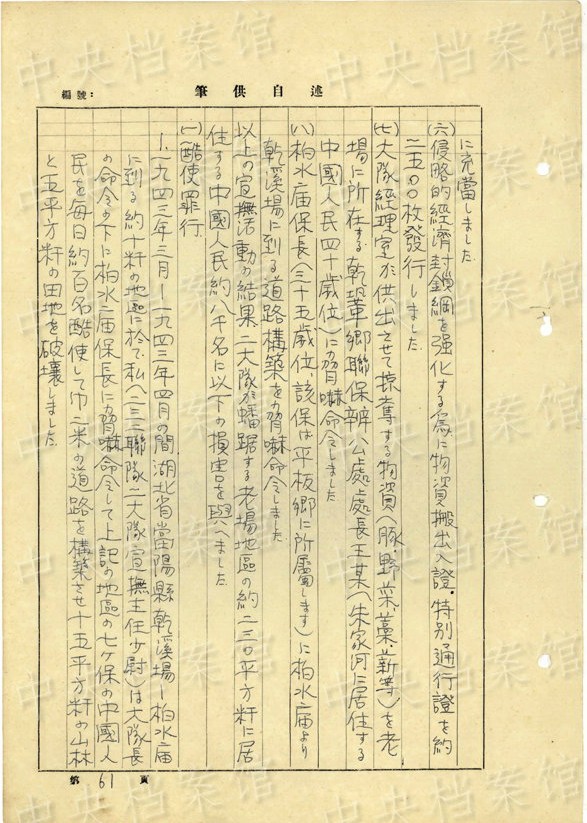 述自供筆
編號：
に充當しました
(六)侵略的經濟封鎖綱を强化する爲に物資搬出入證．特別通行證を約
二五〇〇枚發行しました
(七)大隊經理室が供出させて掠奪する物資(豚．野菜．藁．薪等)を老
場に所在する乾 鄕聯保辦公處處長王某(朱家河に居住する
中國人民四十歲位)に脅嚇命令しました
(八)柏水庙保長(三十五歲位、該保は平板鄕に所屬します)に柏水庙より
乾溪場に到る道路構築を脅嚇命令しました
以上の宣撫活動の結果二大隊が蟠踞する老場地區の約二三〇平方粁に居
住する中國人民約八千名に以下の損害を與へました
(一)酷使罪行
1．一九四三年三月—一九四三年四月の間湖北省當陽縣乾溪場—柏水庙
に到る約十粁の地區に於て私(二三二聯隊二大隊宣撫主任少尉)は大隊長
の命令の下に柏水庙保長に脅嚇命令して上記の地區の七ヶ保の中國人
民を每日約百名酷使して巾二米の道路を構築させ十五平方粁の山林
と五平方粁の田地を破壞しました
第 61 頁
中央档案馆